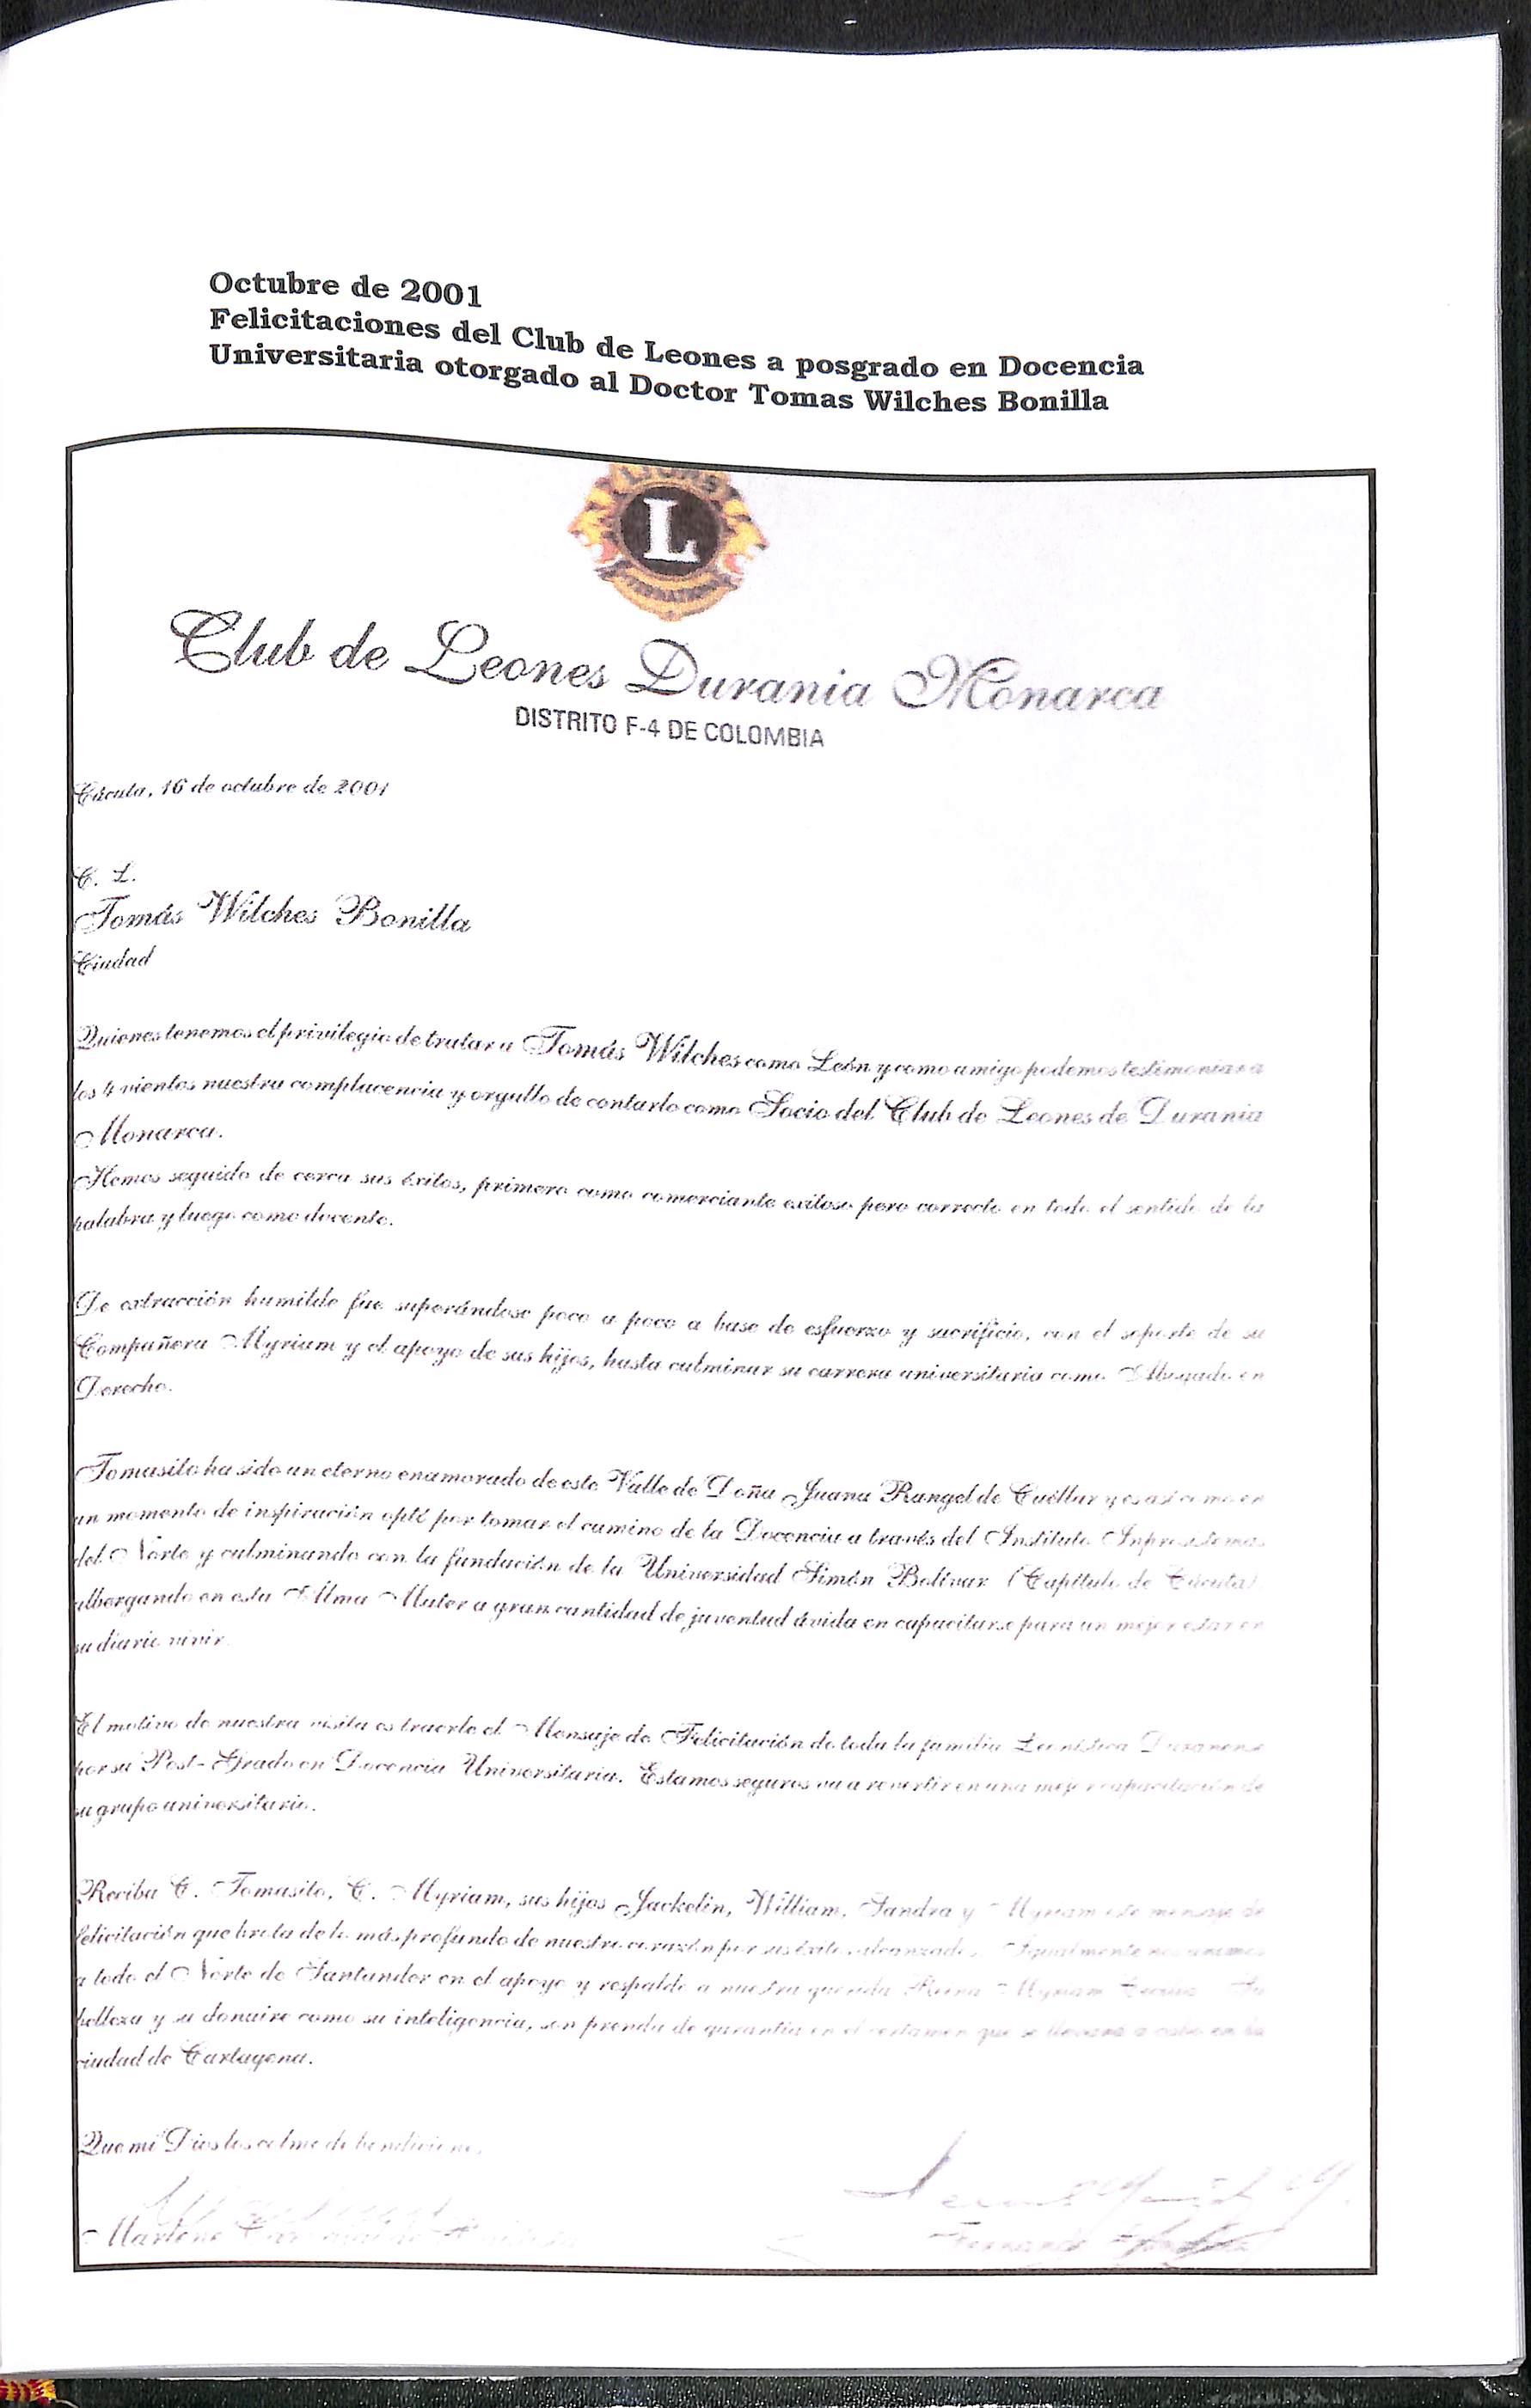 Octubre de 2001
Felicitaciones del Club de Leones a posgrado en Docencia
Universitaria otorgado al Doctor Tomas Wilches Bonilla
LIONS
L
Club de Leones Durania Monarca
DISTRITO F-4 DE COLOMBIA
Cúcuta, 16 de octubre de 2001
C. L.
Tomás Wilches Bonilla
Ciudad
Quienes tenemos el privilegio de tratar a Tomás Wilches como León y como amigo podemos testimoniar a
los 4 vientos nuestra complacencia y orgullo de contarlo como Socio del Club de Leones de Durania
Monarca.
Hemos seguido de cerca sus éxitos, primero como comerciante exitoso pero correcto en todo el sentido de la
palabra y luego como docente.
De extracción humilde fue superándose poco a poco a base de esfuerzo y sacrificio, con el soporte de su
Compañera Myriam y el apoyo de sus hijos, hasta culminar su carrera universitaria como Abogado en
Derecho.
Tomasito ha sido un eterno enamorado de este Valle de Doña Juana Rangel de Cuéllar y es así como en
un momento de inspiración opté por tomar el camino de la Docencia a través del Instituto Inprosistemas
del Norte y culminando con la fundación de la Universidad Simón Bolívar (Capítulo de Cúcuta)
albergando en esta Alma Mater a gran cantidad de juventud ávida en capacitarse para un mejor estar en
su diario vivir.
El motivo de nuestra visita es traerle el Mensaje de Felicitación de toda la familia Leonística
por su Post-Grado en Docencia Universitaria. Estamos seguros va a revertir en una mejor capacitación de
su grupo universitario.
Reciba C. Tomasito, C. Myriam, sus hijos Jackelin, William, Sandra y Myriam este mensaje de
felicitación que brota de lo más profundo de nuestro corazón por sus éxitos alcanzados. Igualmente nos unimos
a todo el Norte de Santander en el apoyo y respaldo a nuestra querida Reina Myriam Su
belleza y su donaire como su inteligencia, son prenda de garantía en el certamen que se llevará a cabo en la
ciudad de Cartagena.
Que mi Dios los colme de bendiciones.
Marlene
Fernando